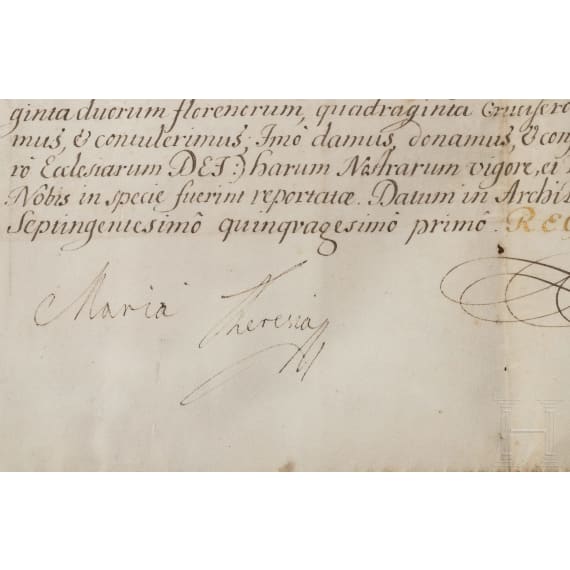 ginta duorum florenorum, quadraginta Crucifero
mus, & contulerimus; Imò damus, donamus, & con
rô Ecclesiarum DEI:) harum Nostrarum vigore, ei
Nobis in specie fuerint reportatæ. Datum in Archi
Septingentesimô quinquagesimô primô. REG
Maria Theresia